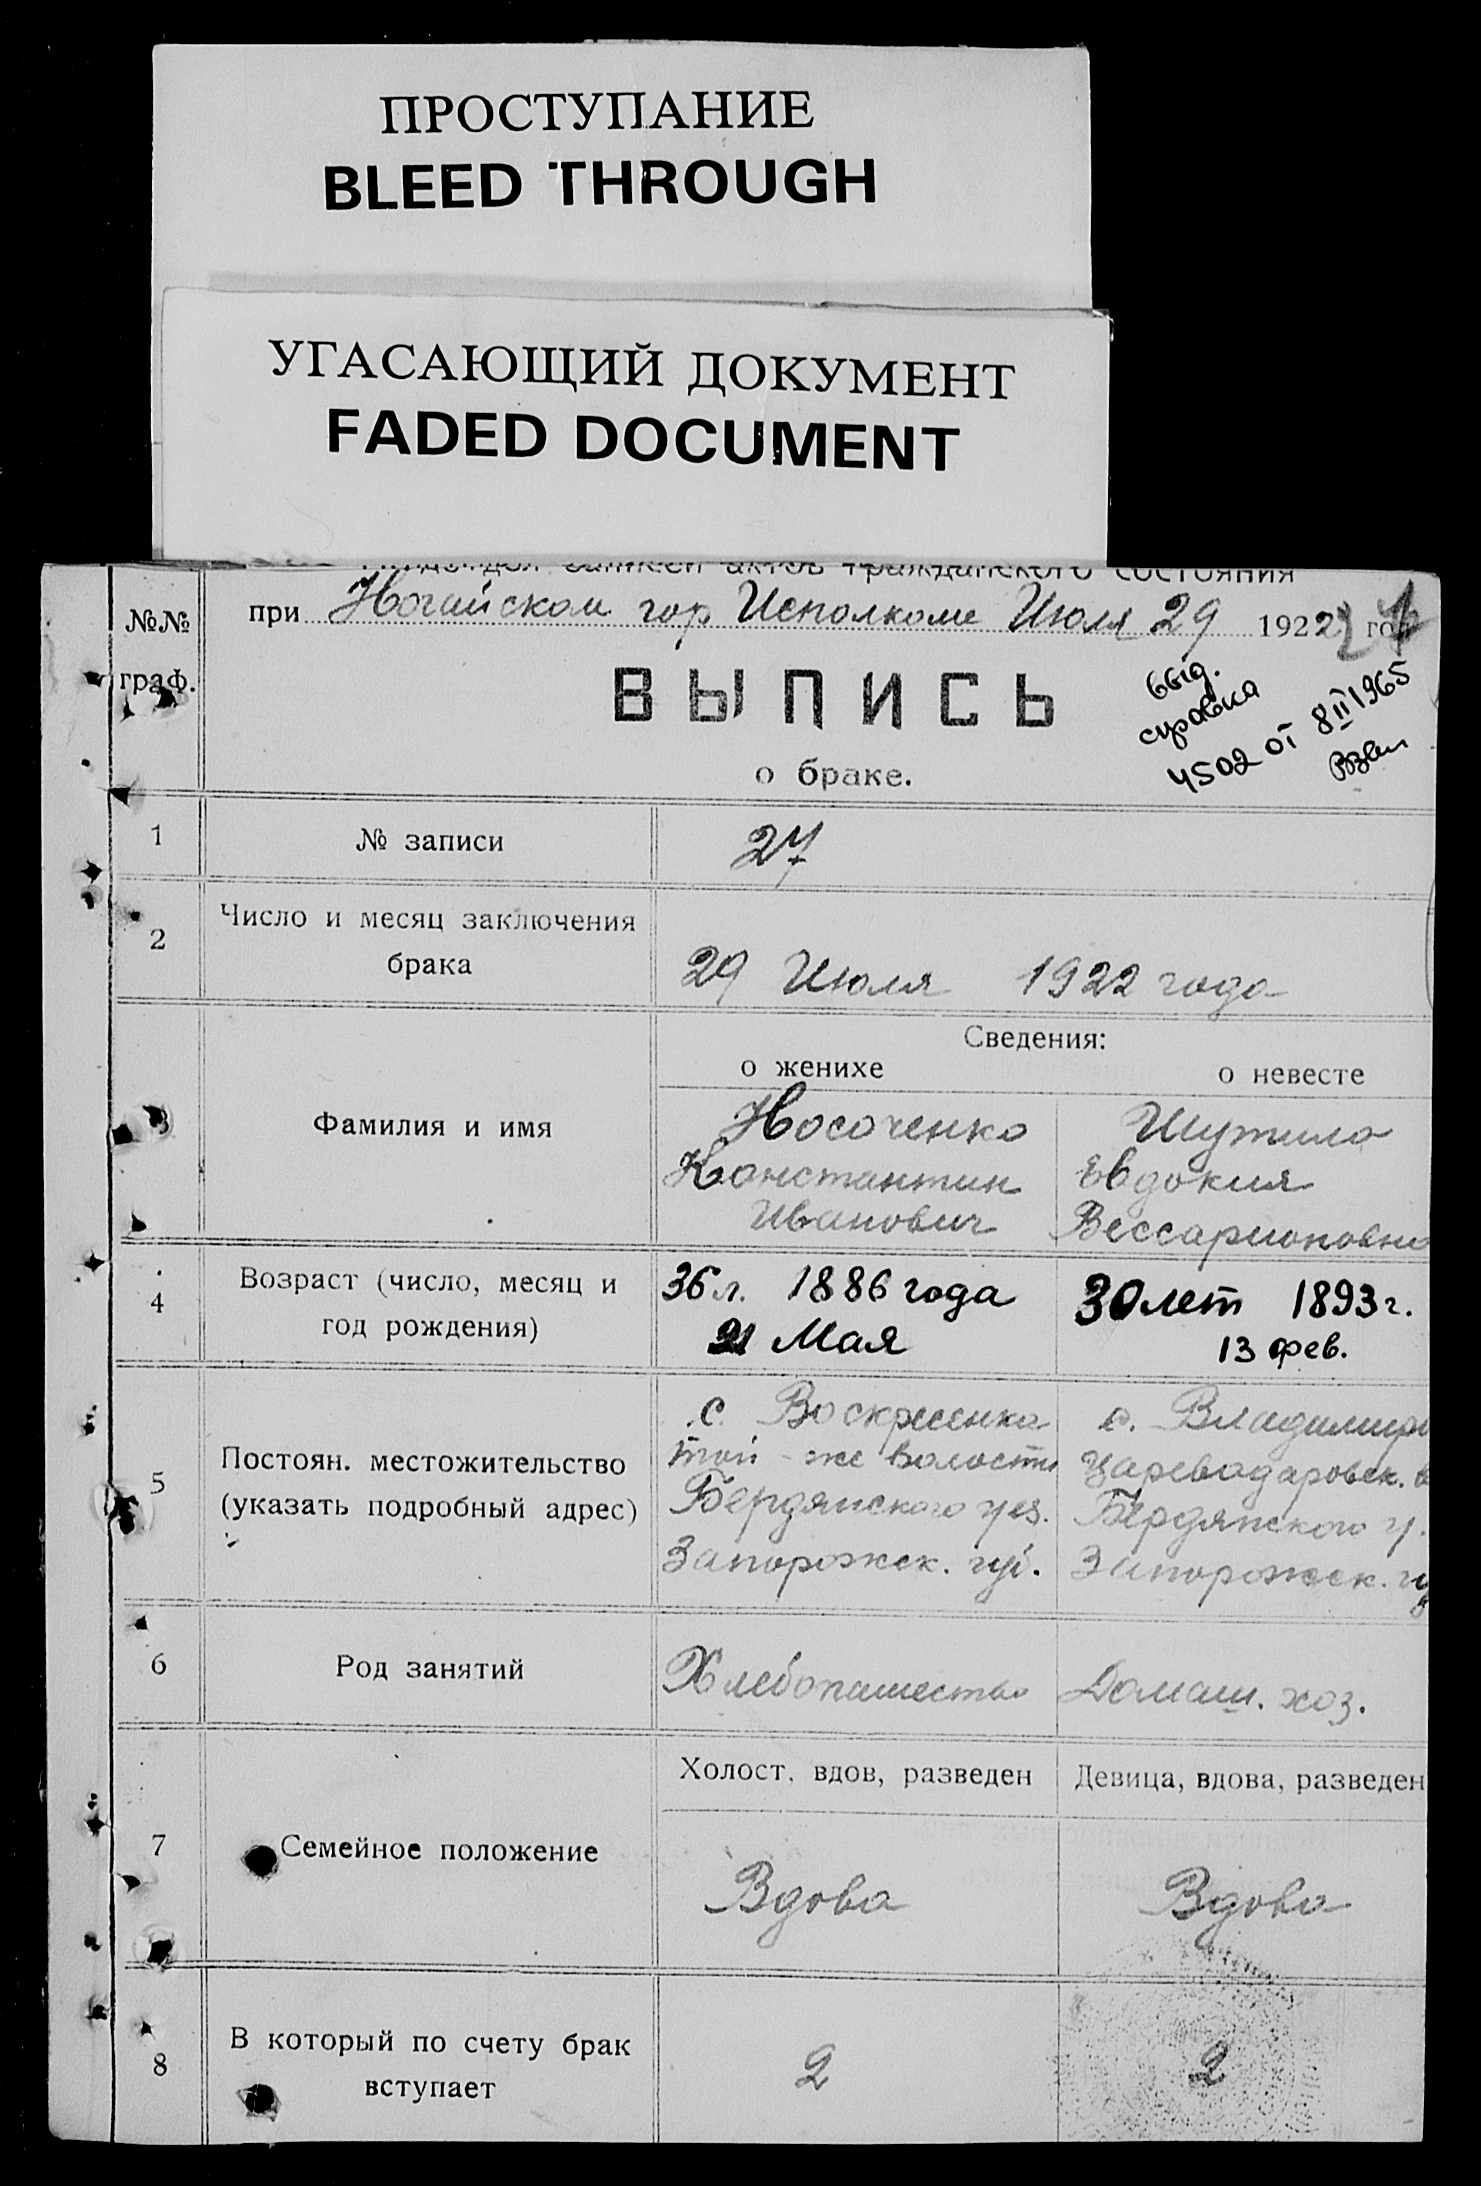 ПРОСТУПАНИЕ
BLEED THROUGH
УГАСАЮЩИЙ ДОКУМЕНТ
FADED DOCUMENT
записей актов гражданского состояния
№№ граф.
при Ногайском гор Исполкоме Июля 29 1922 год
ВЫПИСЬ
о браке.
выд.
справка
4502 от 8 II 1965
1 № записи 27
2 Число и месяц заключения
брака
29 Июля 1922 года
Сведения:
о женихе о невесте
3 Фамилия и имя
Носоченко Шутило
Константин Евдокия
Иванович Вессарионовно
4 Возраст (число, месяц и
год рождения)
36 л. 1886 года 30 лет 1893 г.
21 Мая 13 фев.
5 Постоян. местожительство
(указать подробный адрес)
с. Воскресенка с. Владимиро
той-же волости Царевадаровск. в
Бердянского уез. Бердянского у.
Запорожск. губ. Запорожск. гу
6 Род занятий Хлебопашество Домаш. хоз.
Холост, вдов, разведен Девица, вдова, разведен
7 Семейное положение
Вдова Вдова
8 В который по счету брак
вступает
2 2